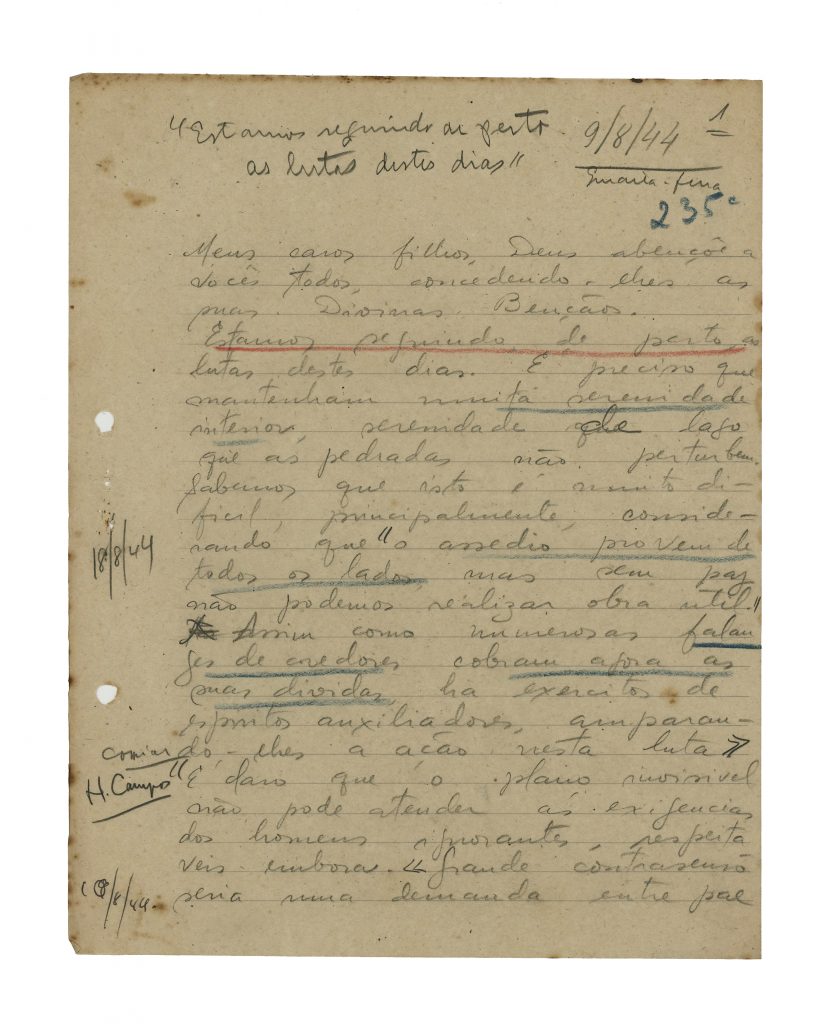 "Estamos seguindo de perto
as lutas destes dias"
9/8/44
1
Quarta-feira
235
Meus caros filhos, Deus abençôe a
vocês todos, concedendo-lhes as
suas Divinas Bençãos.
Estamos seguindo de perto as
lutas destes dias. É preciso que
mantenham muita serenidade
interior, serenidade de lago
que as pedradas não perturbem.
Sabemos que isto é muito di-
ficil, principalmente, conside-
rando que "o assedio provem de
todos os lados, mas sem paz
não podemos realizar obra util."
Assim como numerosas falan
ges de credores cobram agora as
suas dividas, ha exercitos de
espiritos auxiliadores, amparan-
do-lhes a ação nesta luta"
"É claro que o plano invisivel
não pode atender ás exigencias
dos homens ignorantes, respeitá
veis embora. "Grande contrasenso
seria uma demanda entre pae
18/8/44
H. Campos
18/8/44.